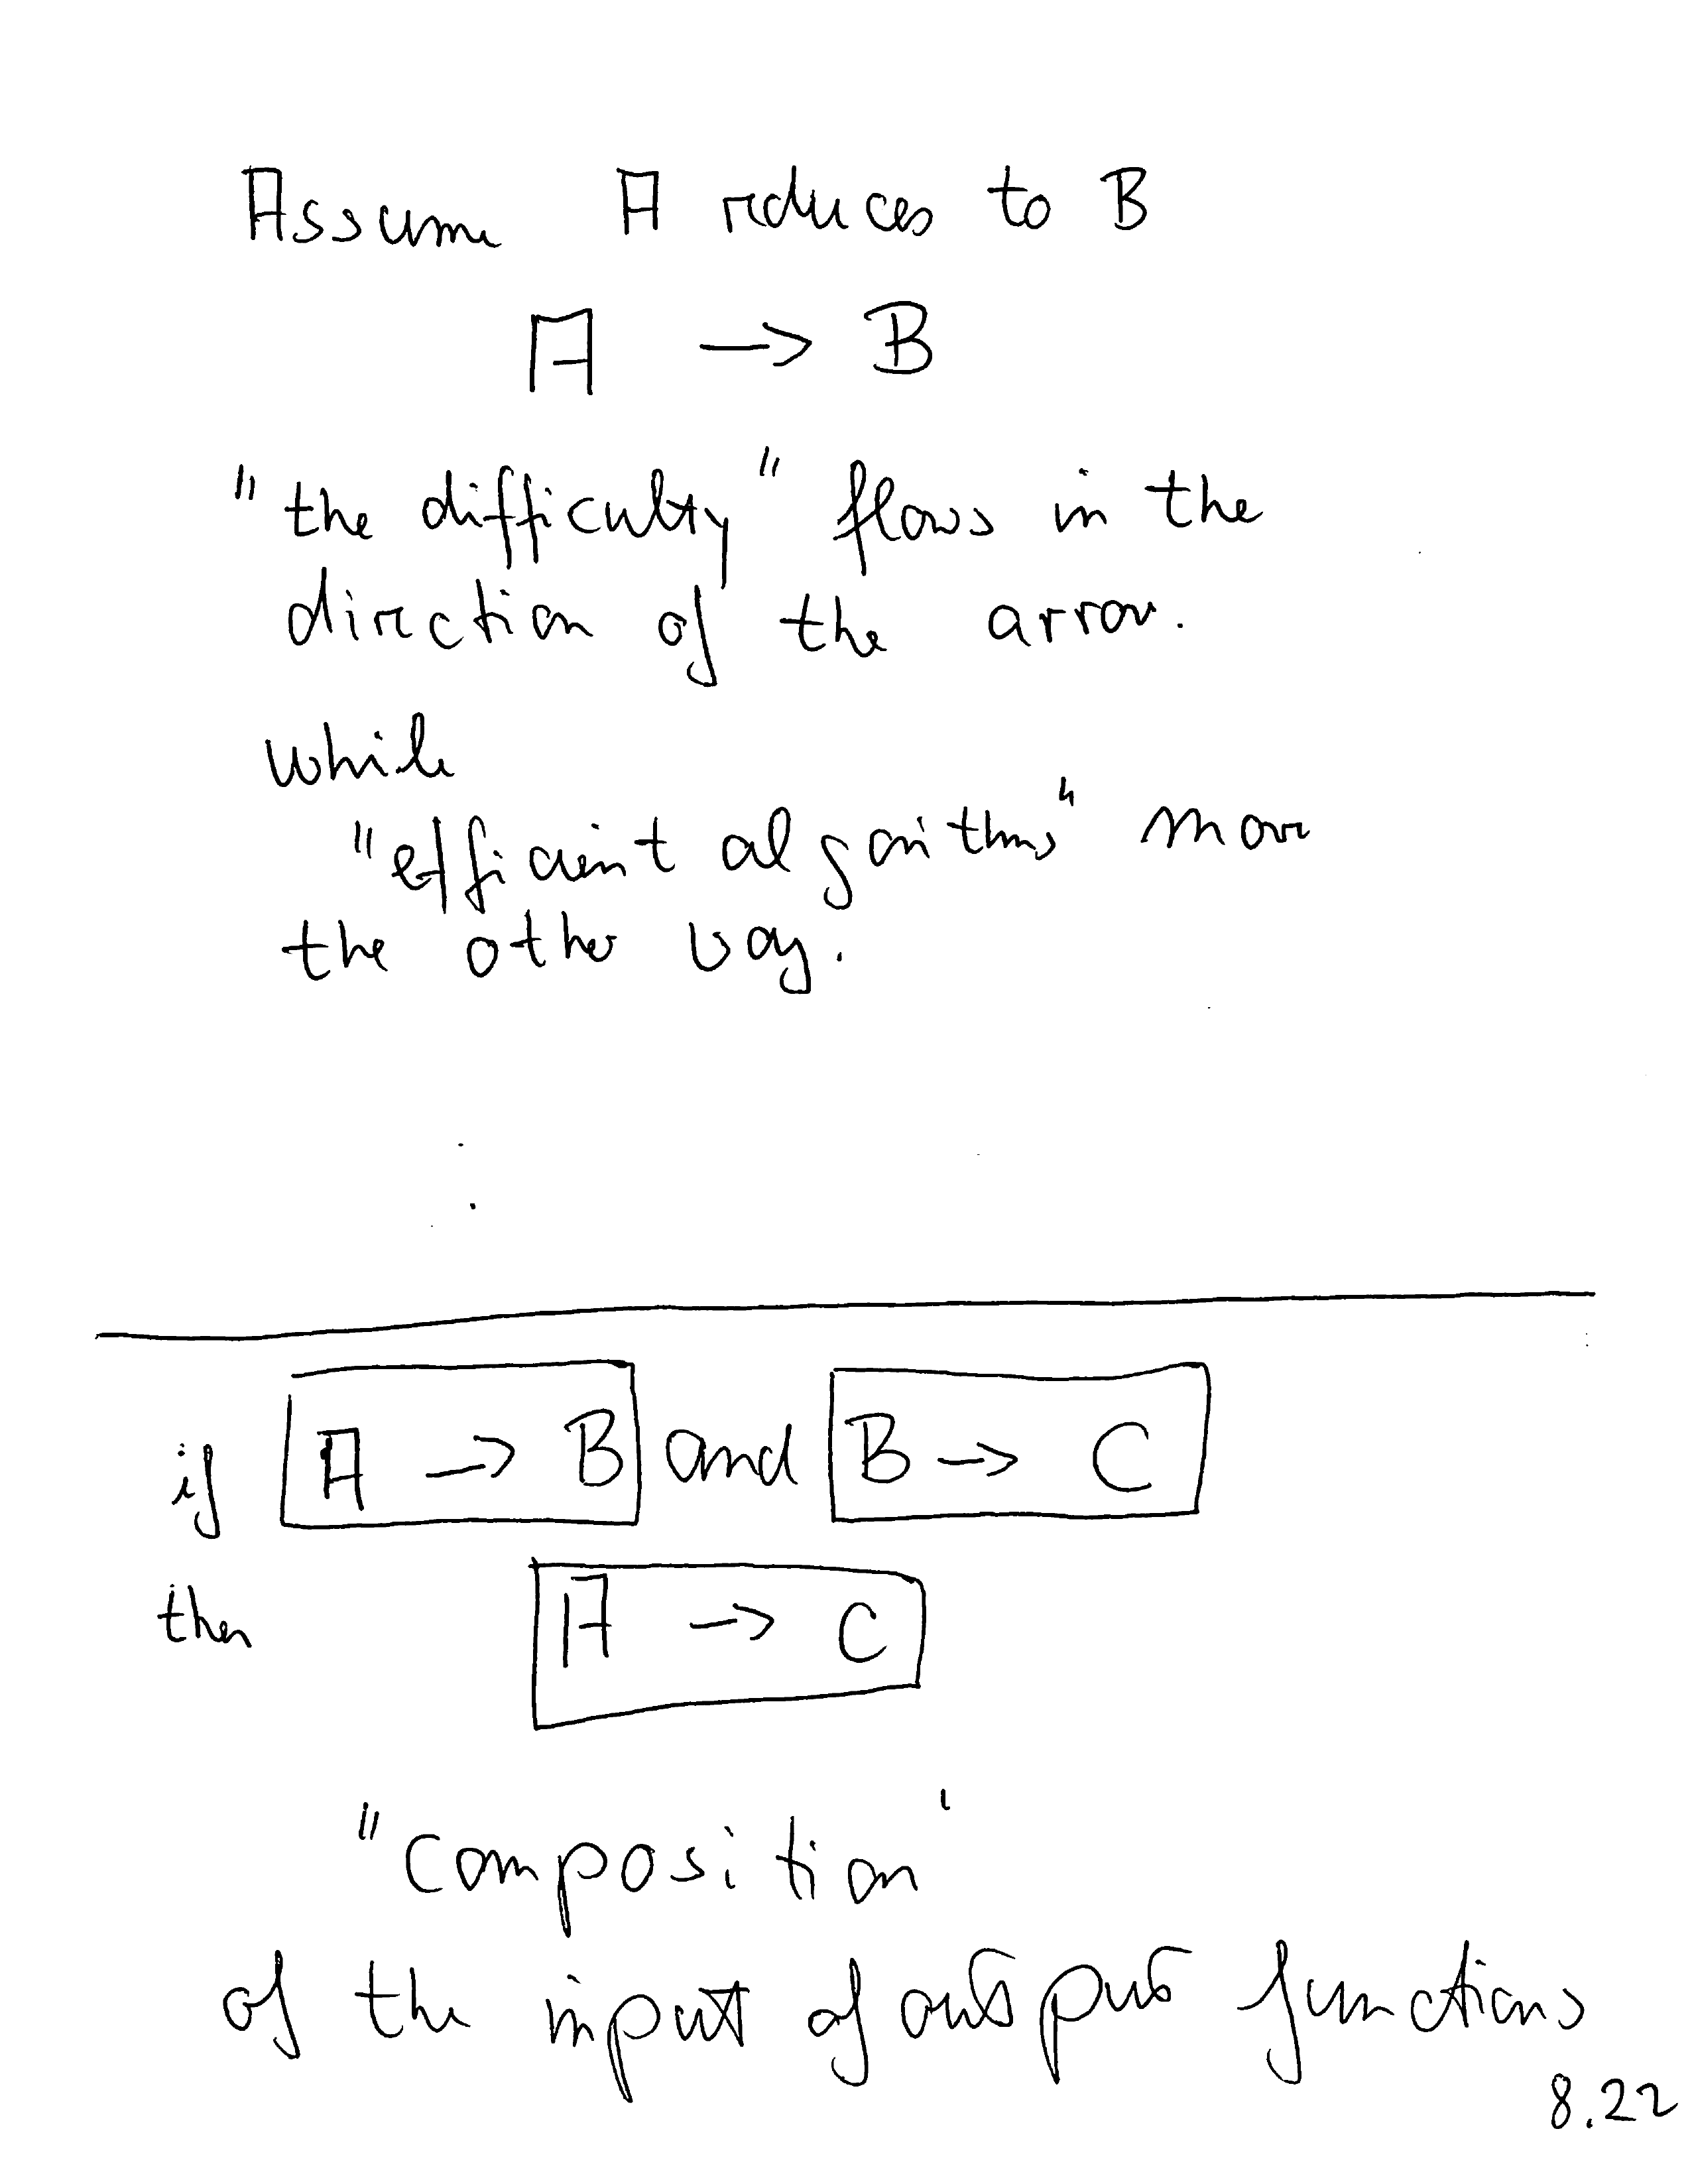 Assume A reduces to B
A -> B
"the difficulty" flows in the
direction of the arrow.
while
"efficient algorithms" move
the other way.
if A -> B and B -> C
then A -> C
"composition'
of the input of output functions
8.22